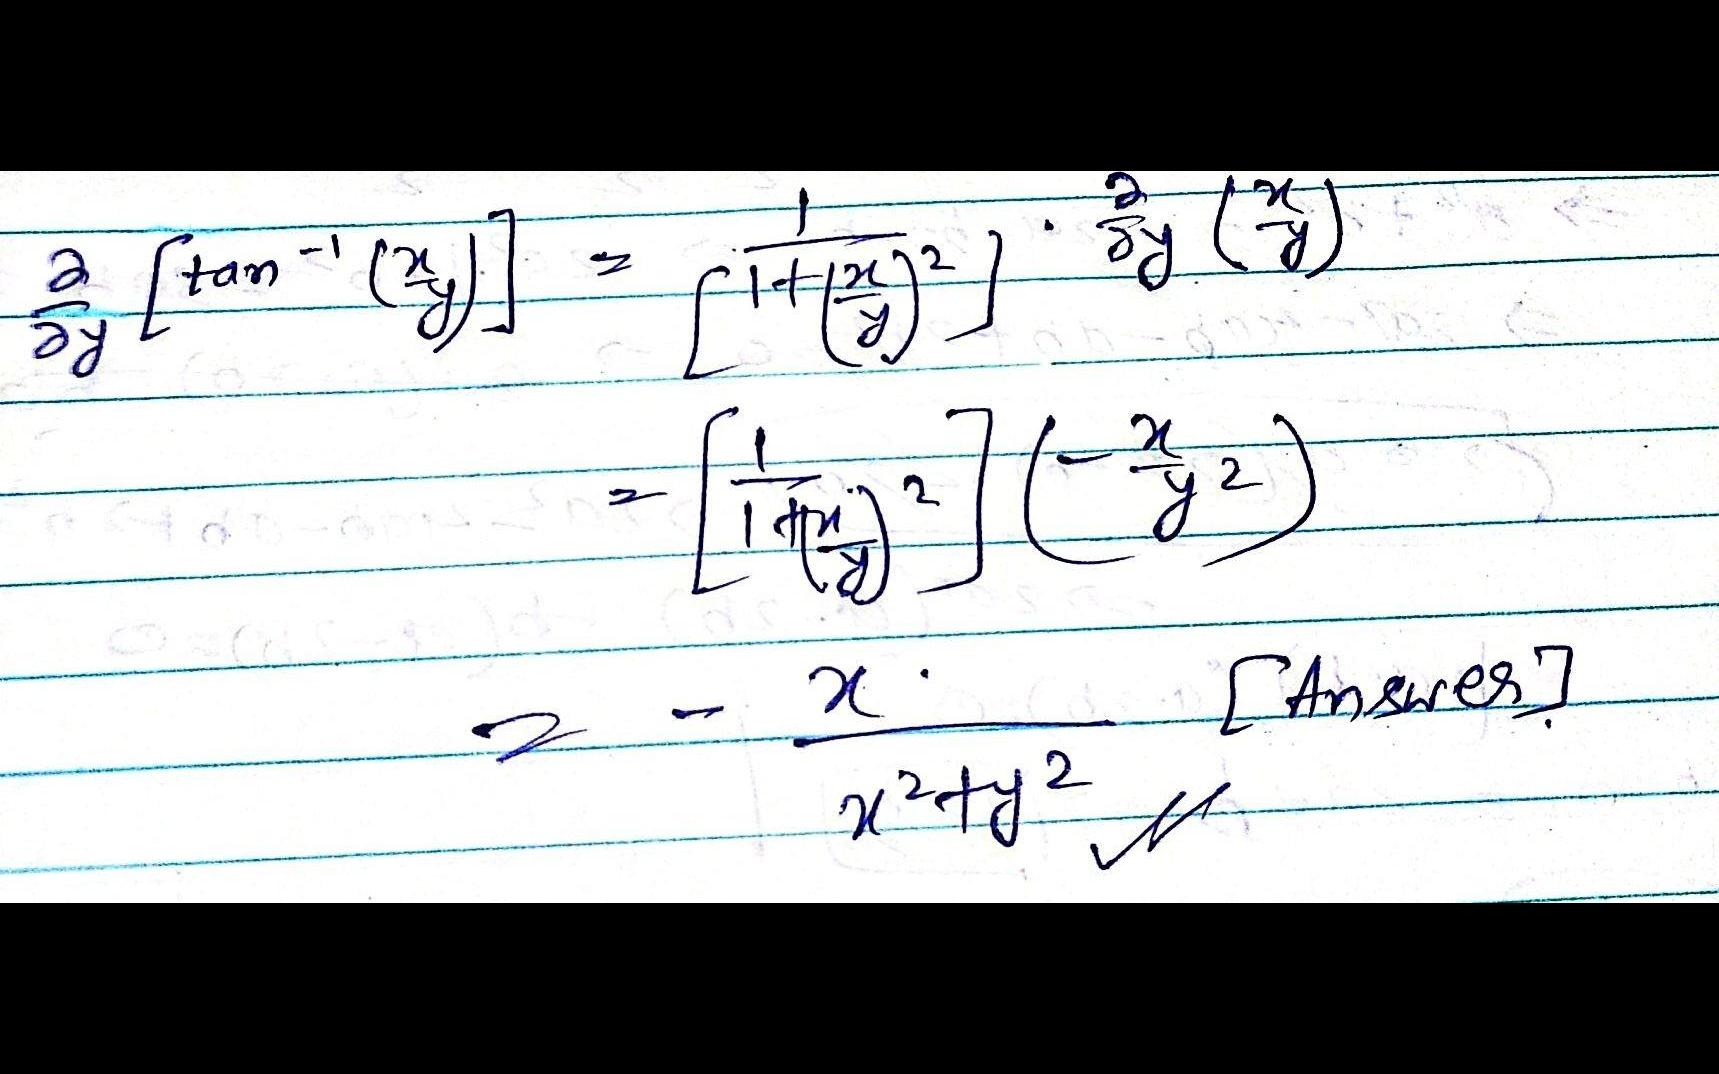 ∂/∂y [tan⁻¹ (x/y)] = 1/[1+(x/y)²] · ∂/∂y (x/y)
= [1/1+(x/y)²] (- x/y²)
= - x/x²+y² [Answer]